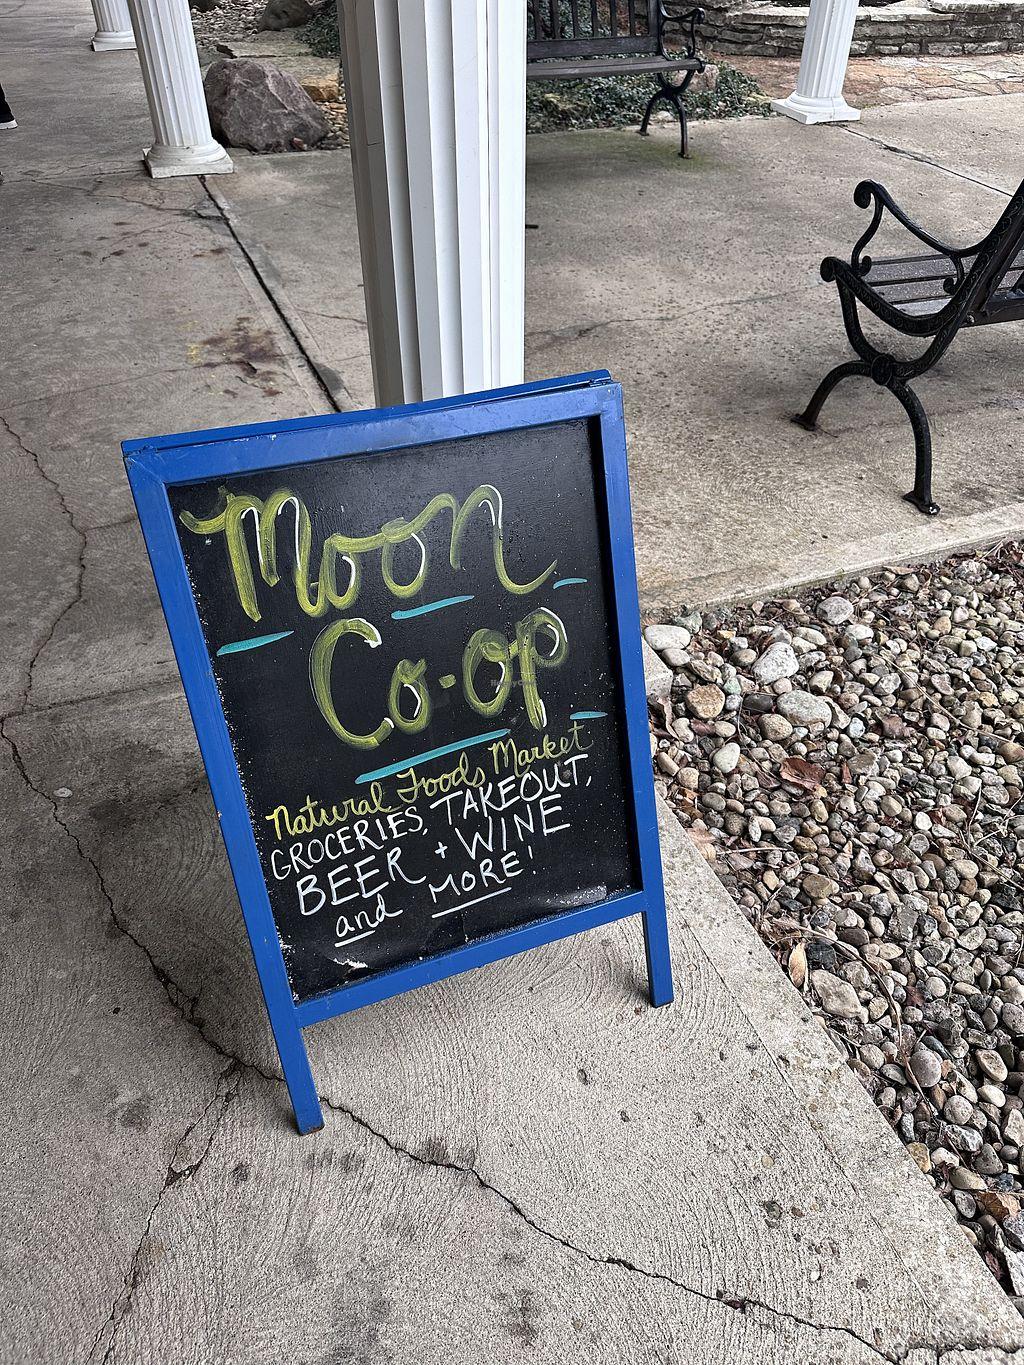 Moon
Co-op
Natural Foods Market
GROCERIES, TAKEOUT,
BEER + WINE
and MORE!